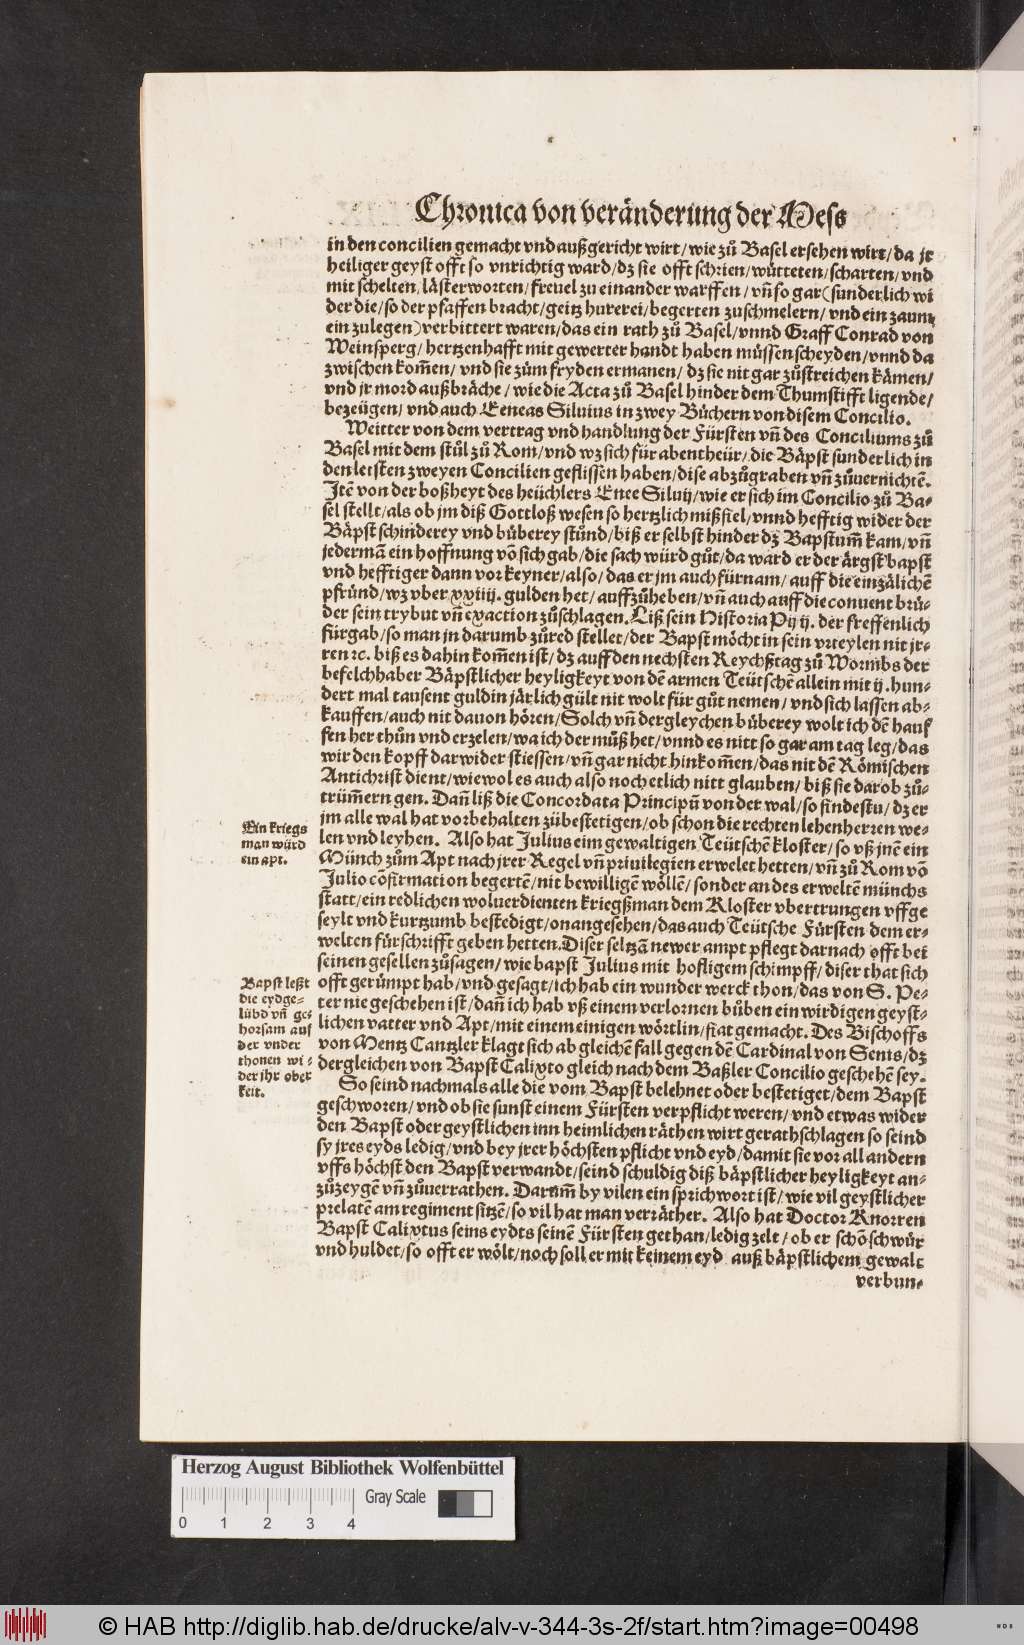 Chronica von veränderung der Mess
in den concilien gemacht vnd außgericht wirt/ wie zů Basel ersehen wirt/ da jr
heiliger geyst offt so vnrichtig ward/ dz sie offt schrien/ wütteten/ scharten/ vnd
mit schelten/ lästerworten/ freuel zu einander warffen/ vñ so gar (sunderlich wi
der die/ so der pfaffen bracht/ geitz hurerei/ begerten zu schmelern/ vnd ein zaum
ein zulegen) verbittert waren/ das ein rath zů Basel/ vnnd Graff Conrad von
Weinsperg/ hertzenhafft mit gewerter handt haben müssen scheyden/ vnnd da
zwischen kom̃en/ vnd sie zům fryden ermanen/ dz sie nit gar zůstreichen kämen/
vnd jr mord außbräche/ wie die Acta zů Basel hinder dem Thumstifft ligende/
bezeügen/ vnd auch Eneas Siluius in zwey Bůchern von disem Concilio.
Weitter von dem vertrag vnd handlung der Fürsten vñ des Conciliums zů
Basel mit dem stůl zů Rom/ vnd wz sich für abentheür/ die Bäpst sunderlich in
den letsten zweyen Concilien geflissen haben/ dise abzůgraben vñ zůuernichtẽ.
Itẽ von der boßheyt des heüchlers Enee Siluij/ wie er sich im Concilio zů Ba-
sel stellt/ als ob jm diß Gottloß wesen so hertzlich mißfiel/ vnnd hefftig wider der
Bäpst schinderey vnd bůberey stůnd/ biß er selbst hinder dz Bapstum̃ kam/ vñ
jedermã ein hoffnung võ sich gab/ die sach würd gůt/ da ward er der ärgst bapst
vnd hefftiger dann vor keyner/ also/ das er jm auch fürnam/ auff die einzälichẽ
pfründ/ wz vber xxiiij. gulden het/ auffzůheben/ vñ auch auff die conuent brü-
der sein trybut vñ exaction zůschlagen. Liß sein Historia Pij ij. der freffenlich
fürgab/ so man jn darumb zůred stellet/ der Bapst möcht in sein vrteylen nit jr-
ren ꝛc. biß es dahin kom̃en ist/ dz auff den nechsten Reychßtag zů Wormbs der
befelchhaber Bäpstlicher heyligkeyt von dẽ armen Teütschẽ allein mit ij. hun-
dert mal tausent guldin järlich gült nit wolt für gůt nemen/ vnd sich lassen ab-
kauffen/ auch nit dauon hören/ Solch vñ dergleychen bůberey wolt ich dẽ hauf
fen her thůn vnd erzelen/ wa ich der můß het/ vnnd es nitt so gar am tag leg/ das
wir den kopff darwider stiessen/ vñ gar nicht hinkom̃en/ das nit dẽ Römischen
Antichrist dient/ wiewol es auch also noch etlich nitt glauben/ biß sie darob zů-
trüm̃ern gen. Dañ liß die Concordata Principũ von der wal/ so findestu/ dz er
jm alle wal hat vorbehalten zübestetigen/ ob schon die rechten lehenherren we-
len vnd leyhen. Also hat Julius eim gewaltigen Teütschẽ kloster/ so vß jnẽ ein
Münch zům Apt nach jrer Regel vñ priuilegien erwelet hetten/ vñ zů Rom võ
Julio cõfirmation begertẽ/ nit bewilligẽ wöllẽ/ sonder an des erweltẽ münchs
statt/ ein redlichen woluerdienten kriegßman dem Kloster vbertrungen vffge
seylt vnd kurtzumb bestedigt/ onangesehen/ das auch Teütsche Fürsten dem er-
welten fürschrifft geben hetten. Diser seltzã newer ampt pflegt darnach offt bei
seinen gesellen zůsagen/ wie bapst Julius mit hofligem schimpff/ diser that sich
offt gerümpt hab/ vnd gesagt/ ich hab ein wunder werck thon/ das von S. Pe-
ter nie geschehen ist/ dañ ich hab vß einem verlornen bůben ein wirdigen geyst-
lichen vatter vnd Apt/ mit einem einigen wörtlin/ fiat gemacht. Des Bischoffs
von Mentz Cantzler klagt sich ab gleichẽ fall gegen dẽ Cardinal von Senis/ dz
dergleichen von Bapst Calixto gleich nach dem Baßler Concilio geschehẽ sey.
So seind nachmals alle die vom Bapst belehnet oder bestetiget/ dem Bapst
geschworen/ vnd ob sie sunst einem Fürsten verpflicht weren/ vnd etwas wider
den Bapst oder geystlichen inn heimlichen räthen wirt gerathschlagen so seind
sy jres eyds ledig/ vnd bey jrer höchsten pflicht vnd eyd/ damit sie vor all andern
vffs höchst den Bapst verwandt/ seind schuldig diß bäpstlicher heyligkeyt an-
zůzeygẽ vñ zůuerrathen. Darum̃ by vilen ein sprichwort ist/ wie vil geystlicher
prelatẽ am regiment sitzẽ/ so vil hat man verräther. Also hat Doctor Knorren
Bapst Calixtus seins eydts seinẽ Fürsten gethan/ ledig zelt/ ob er schõ schwůr
vnd huldet/ so offt er wölt/ noch soll er mit keinem eyd auß bäpstlichem gewalt
verbun-
Ein kriegs
man würd
ein apt.
Bapst leßt
die eydge-
lübd vñ ge-
horsam auf
der vnder
thonen wi-
der jhr ober
keit.
Herzog August Bibliothek Wolfenbüttel
Gray Scale
0 1 2 3 4
© HAB http://diglib.hab.de/drucke/alv-v-344-3s-2f/start.htm?image=00498